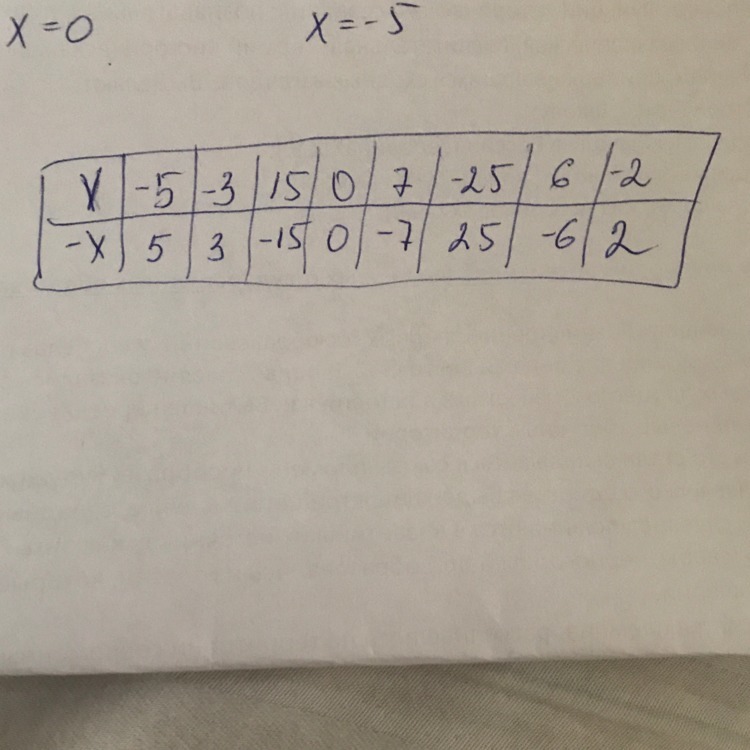 x=0 x=-5
x -5 -3 15 0 7 -25 6 -2
-x 5 3 -15 0 -7 25 -6 2